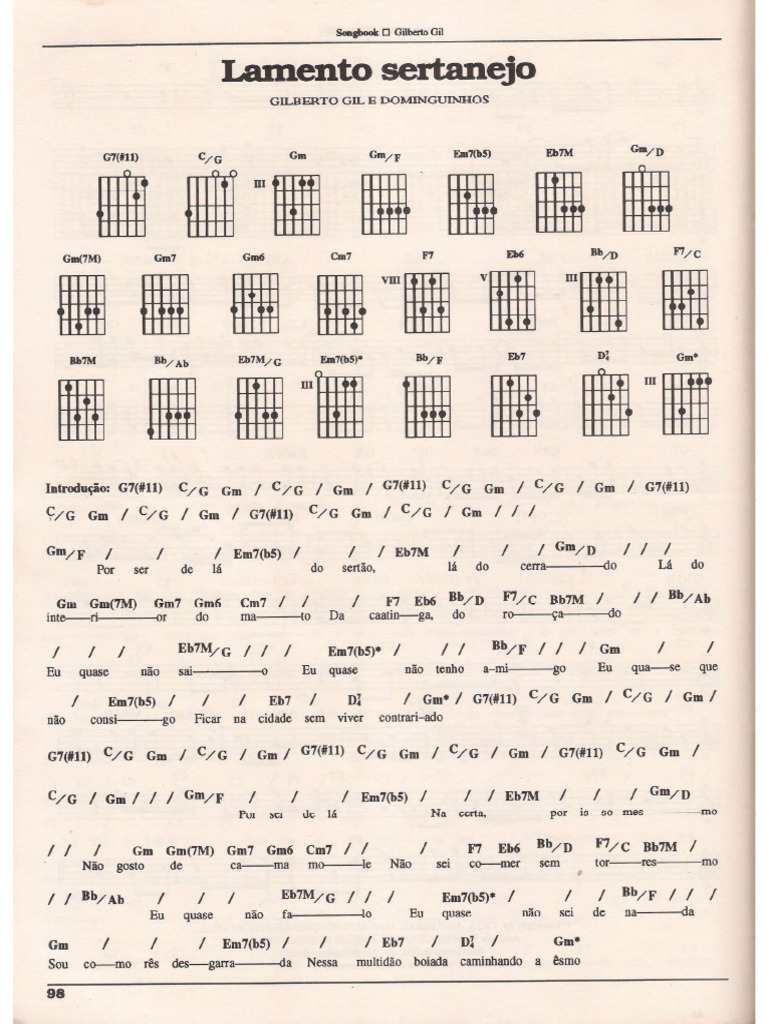 Songbook □ Gilberto Gil
Lamento sertanejo
GILBERTO GIL E DOMINGUINHOS
G7(#11) C/G Gm Gm/F Em7(b5) Eb7M Gm/D
III
Gm(7M) Gm7 Gm6 Cm7 F7 Eb6 Bb/D F7/C
VIII V III
Bb7M Bb/Ab Eb7M/G Em7(b5)* Bb/F Eb7 D7/4 Gm*
III III
Introdução: G7(#11) C/G Gm / C/G / Gm / G7(#11) C/G Gm / C/G / Gm / G7(#11)
C/G Gm / C/G / Gm / G7(#11) C/G Gm / C/G / Gm / / /
Gm/F / / / Em7(b5) / / / Eb7M / / / Gm/D / / /
Por ser de lá do sertão, lá do cerra——do Lá do
Gm Gm(7M) Gm7 Gm6 Cm7 / / / F7 Eb6 Bb/D F7/C Bb7M / / / Bb/Ab
inte—ri—or do ma—to Da caatin—ga, do ro—ça—do
/ / / Eb7M/G / / / Em7(b5)* / / / Bb/F / / / Gm / /
Eu quase não sai——o Eu quase não tenho a-mi—go Eu qua—se que
/ Em7(b5) / / / Eb7 / D7/4 / Gm* / G7(#11) C/G Gm / C/G / Gm /
não consi——go Ficar na cidade sem viver contrari-ado
G7(#11) C/G Gm / C/G / Gm / G7(#11) C/G Gm / C/G / Gm / G7(#11) C/G Gm /
C/G / Gm / / / Gm/F / / / Em7(b5) / / / Eb7M / / / Gm/D
Por ser de lá Na certa, por is so mes mo
/ / / Gm Gm(7M) Gm7 Gm6 Cm7 / / / F7 Eb6 Bb/D F7/C Bb7M /
Não gosto de ca—ma mo—le Não sei co—mer sem tor—res—mo
/ / Bb/Ab / / / Eb7M/G / / / Em7(b5)* / / / Bb/F / / /
Eu quase não fa——lo Eu quase não sei de na—da
Gm / / / Em7(b5) / / / Eb7 / D7/4 / Gm*
Sou co—mo rês des—garra——da Nessa multidão boiada caminhando a êsmo
98